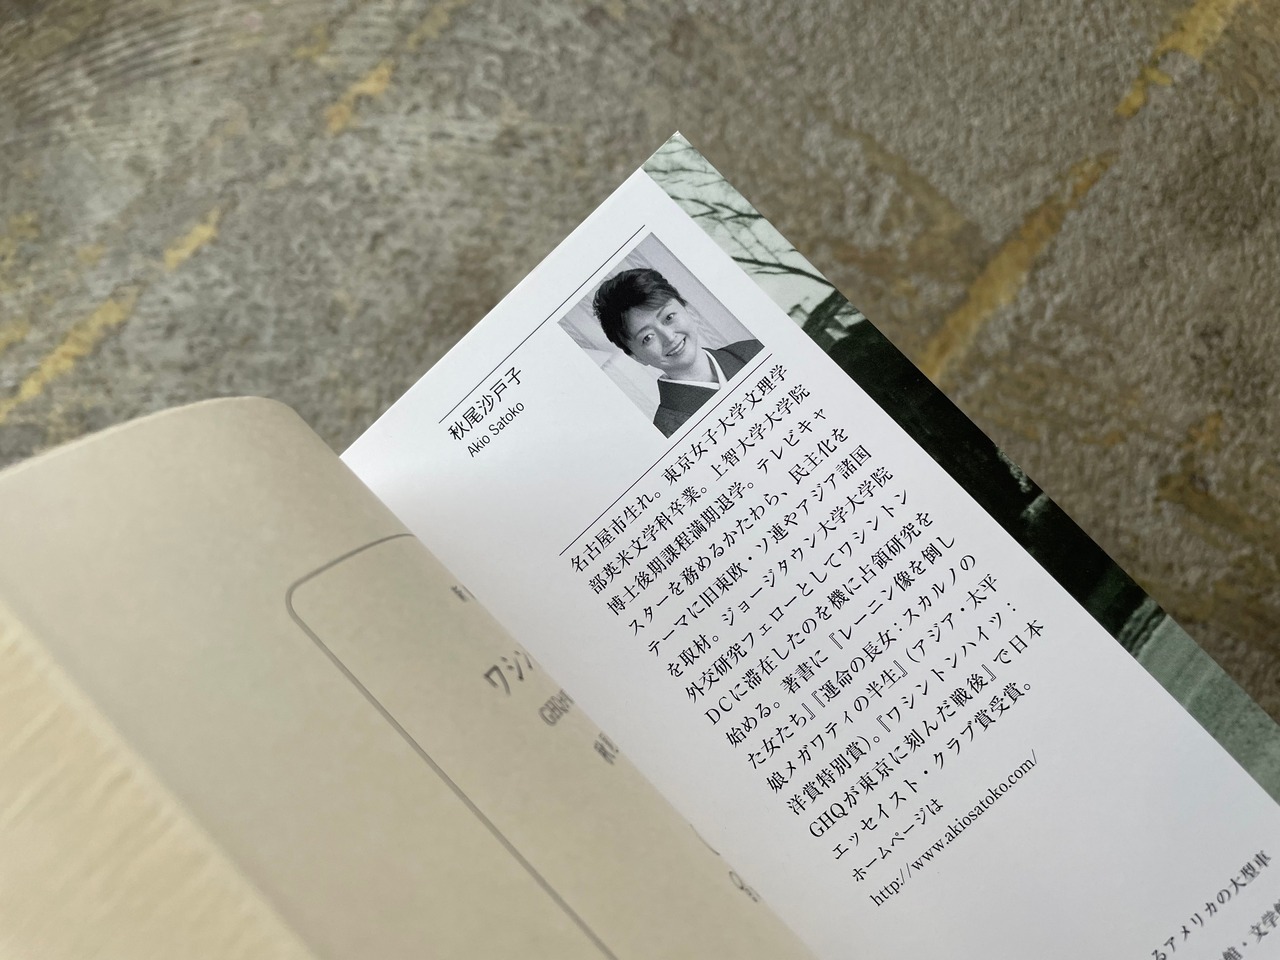 秋尾沙戸子
Akio Satoko
名古屋市生れ。東京女子大学文理学
部英米文学科卒業。上智大学大学院
博士後期課程満期退学。テレビキャ
スターを務めるかたわら、民主化を
テーマに旧東欧・ソ連やアジア諸国
を取材。ジョージタウン大学大学院
外交研究フェローとしてワシントン
DCに滞在したのを機に占領研究を
始める。著書に『レーニン像を倒し
た女たち』『運命の長女:スカルノの
娘メガワティの半生』(アジア・太平
洋賞特別賞)。『ワシントンハイツ:
GHQが東京に刻んだ戦後』で日本
エッセイスト・クラブ賞受賞。
ホームページは
http://www.akiosatoko.com/
ワシン
GHQ
るアメリカの大型車
館・文学館